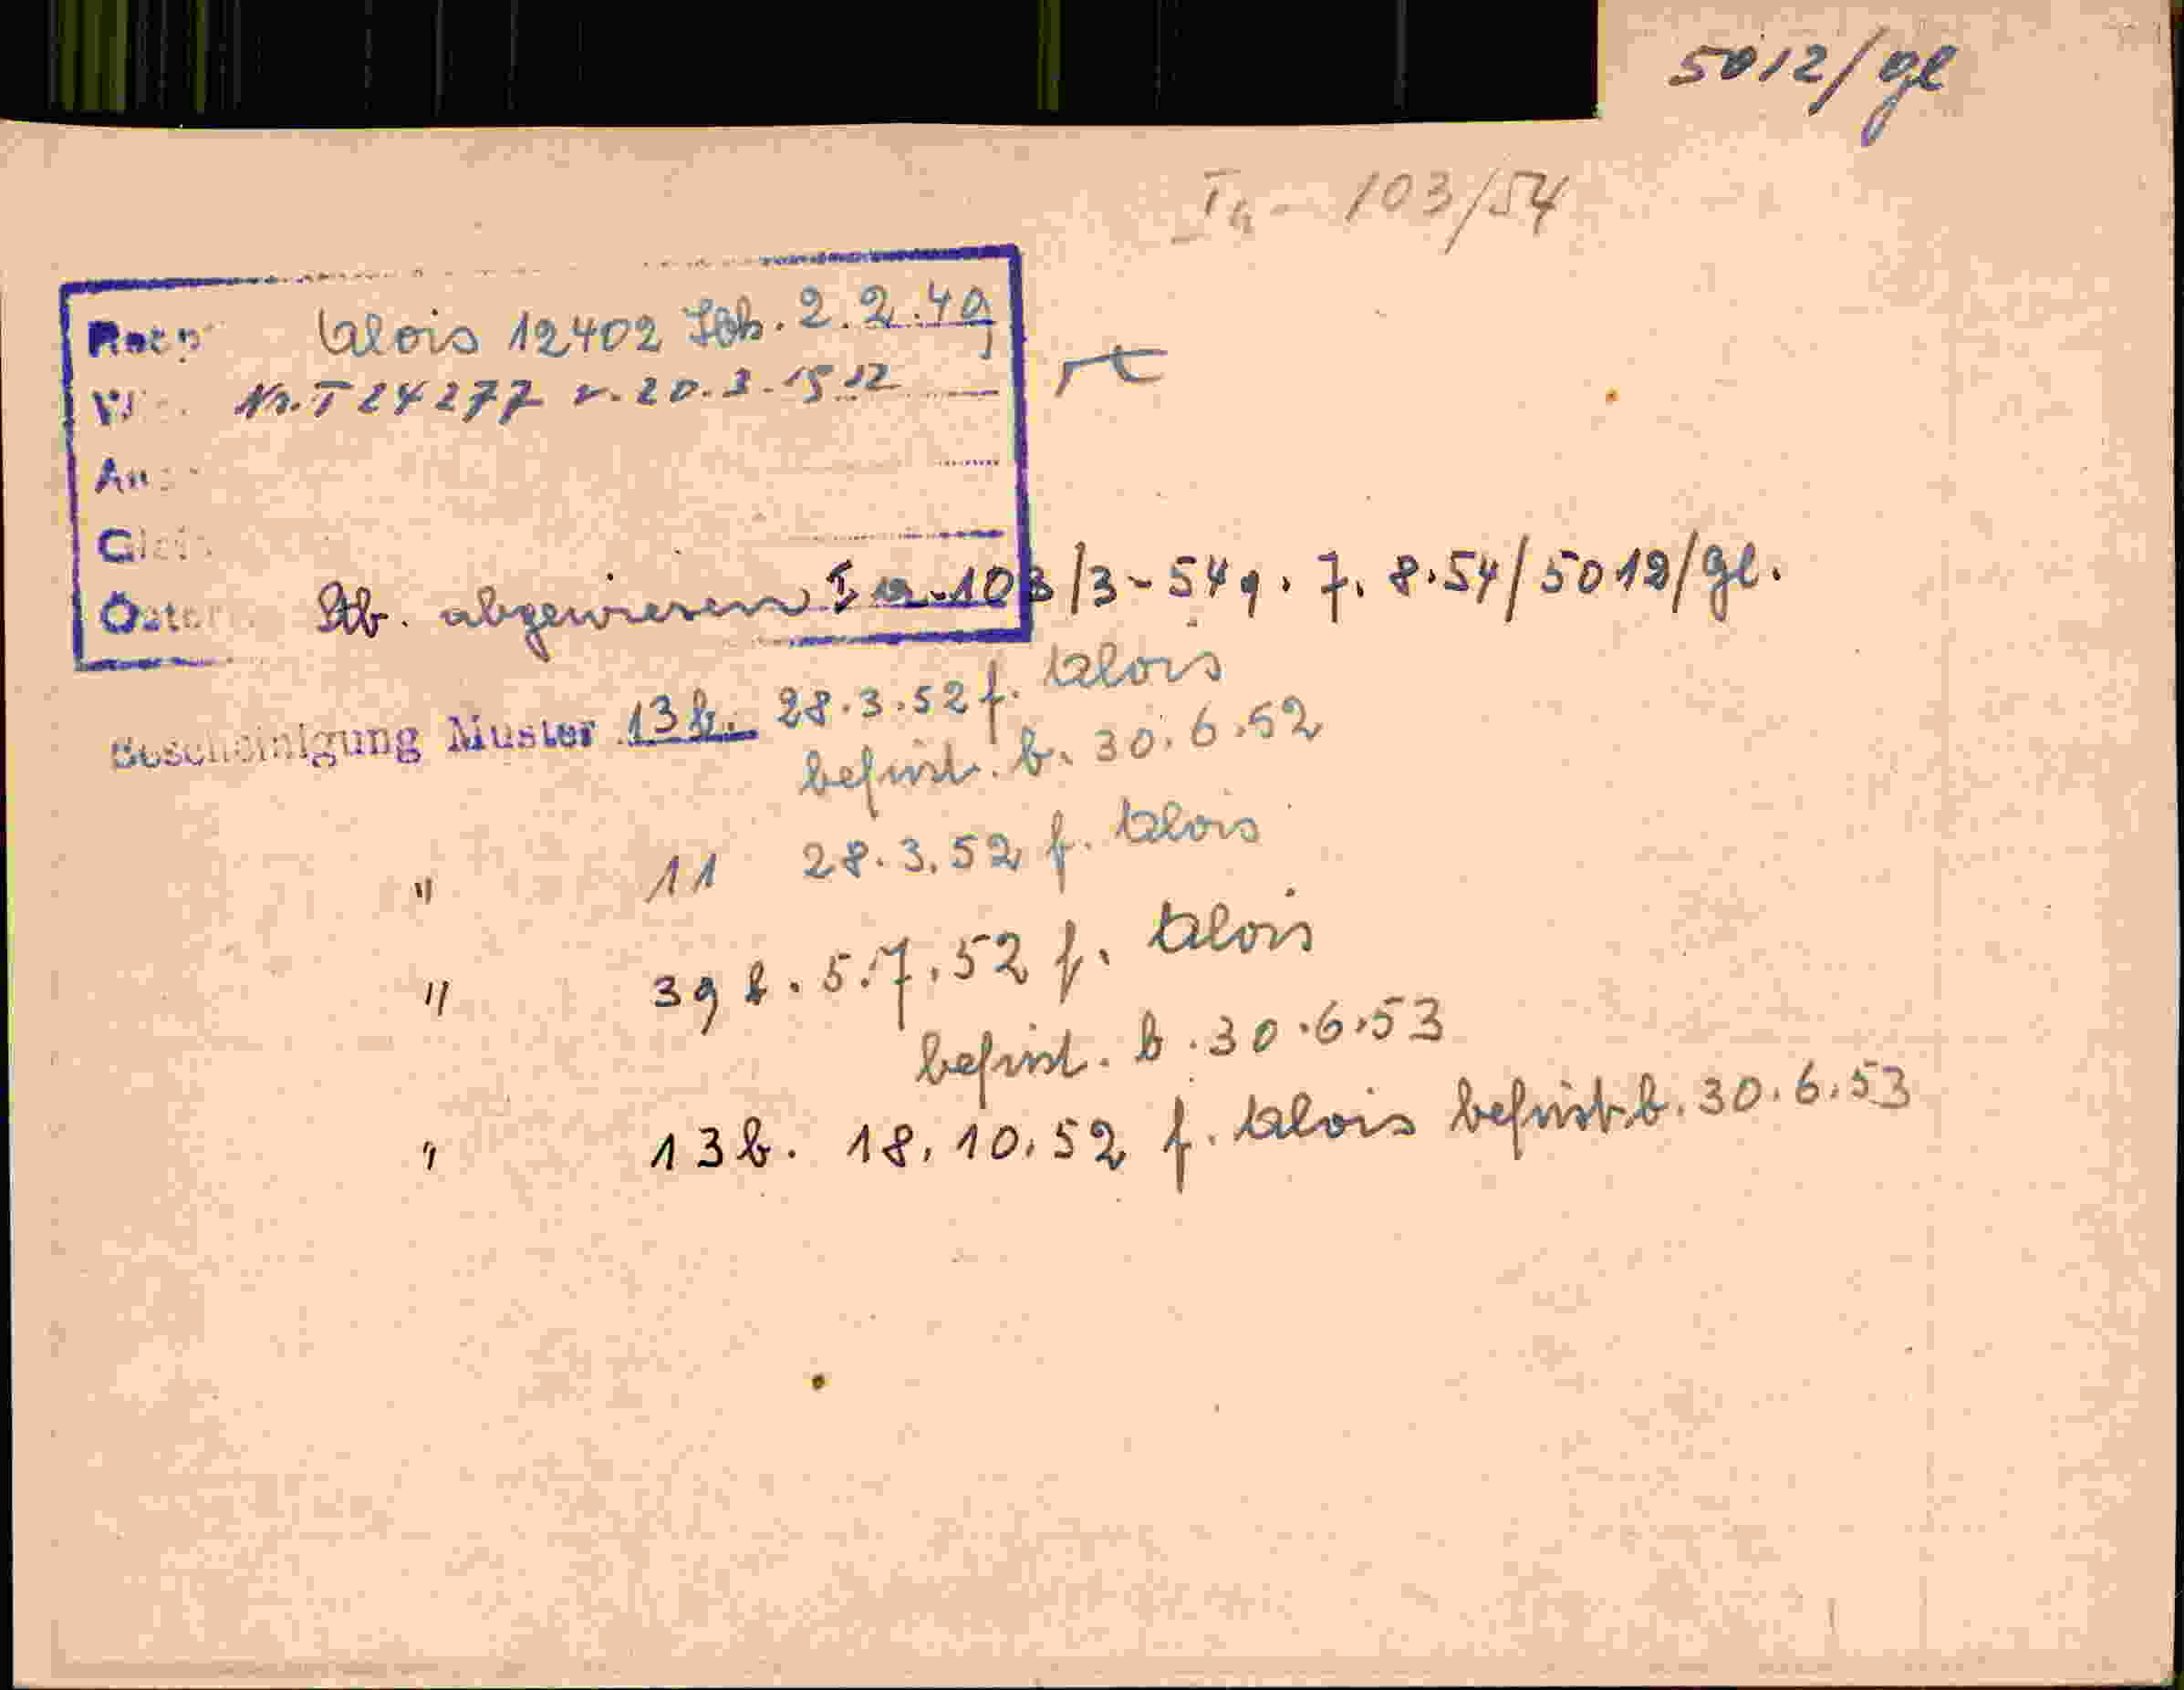 5012/gl
Ia - 103/54
Alois 12402 2.2.49
Nr. T 24277 v. 20.3.1512
Stb. abgewiesen Ia-103/3-54 g. 7.8.54/5012/gl.
Bescheinigung Muster 13b. 28.3.52 f. Alois
befrist. b. 30.6.52
" 11 28.3.52 f. Alois
" 39b. 5.7.52 f. Alois
befrist. b. 30.6.53
" 13b. 18.10.52 f. Alois befrist. b. 30.6.53